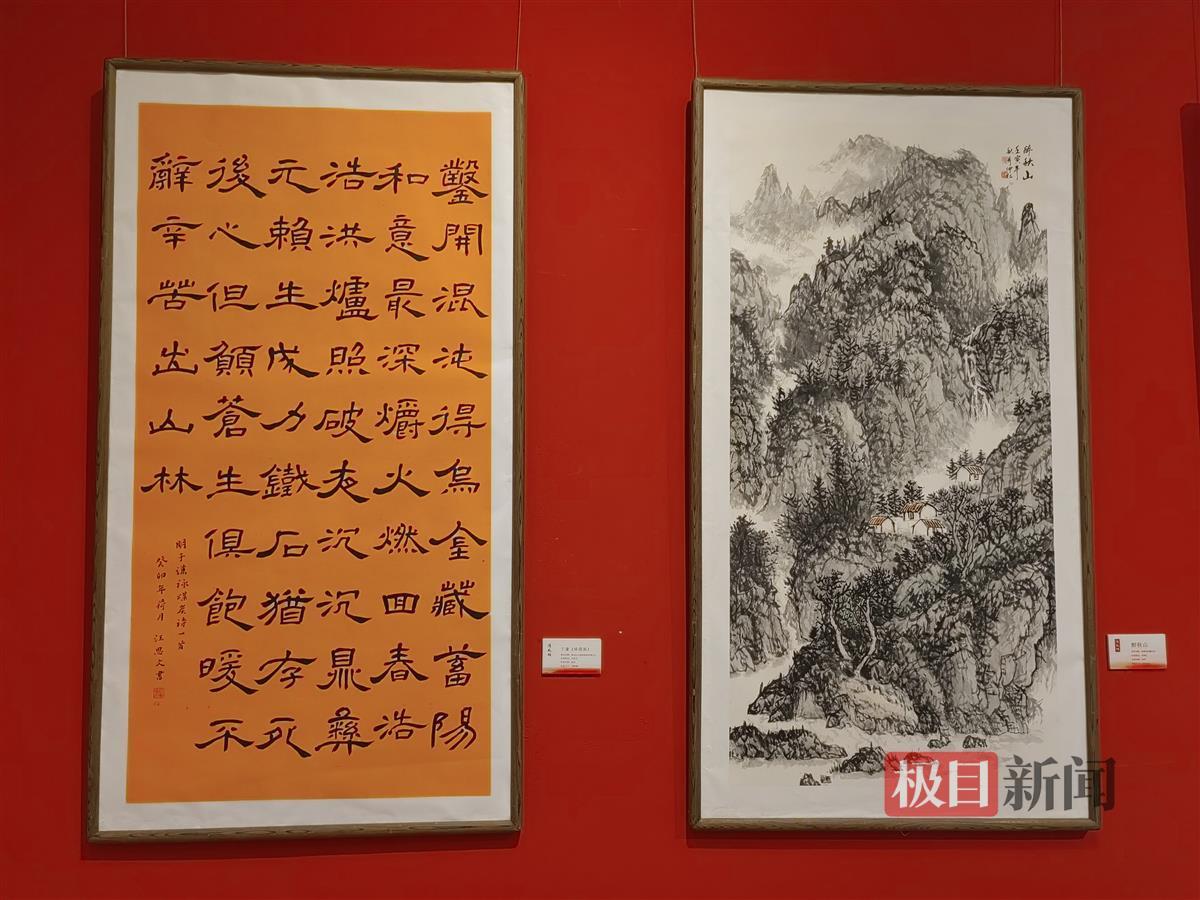 鑿開混沌得烏金藏蓄陽
和意最深爝火燃回春浩
浩洪爐照破夜沉沉鼎彝
元賴生成力鐵石猶存死
後心但願蒼生俱飽暖不
辭辛苦出山林
明于謙詠煤炭詩一首
癸卯年荷月 汪思文書
醉秋山
壬寅年
醉秋山
极目新闻